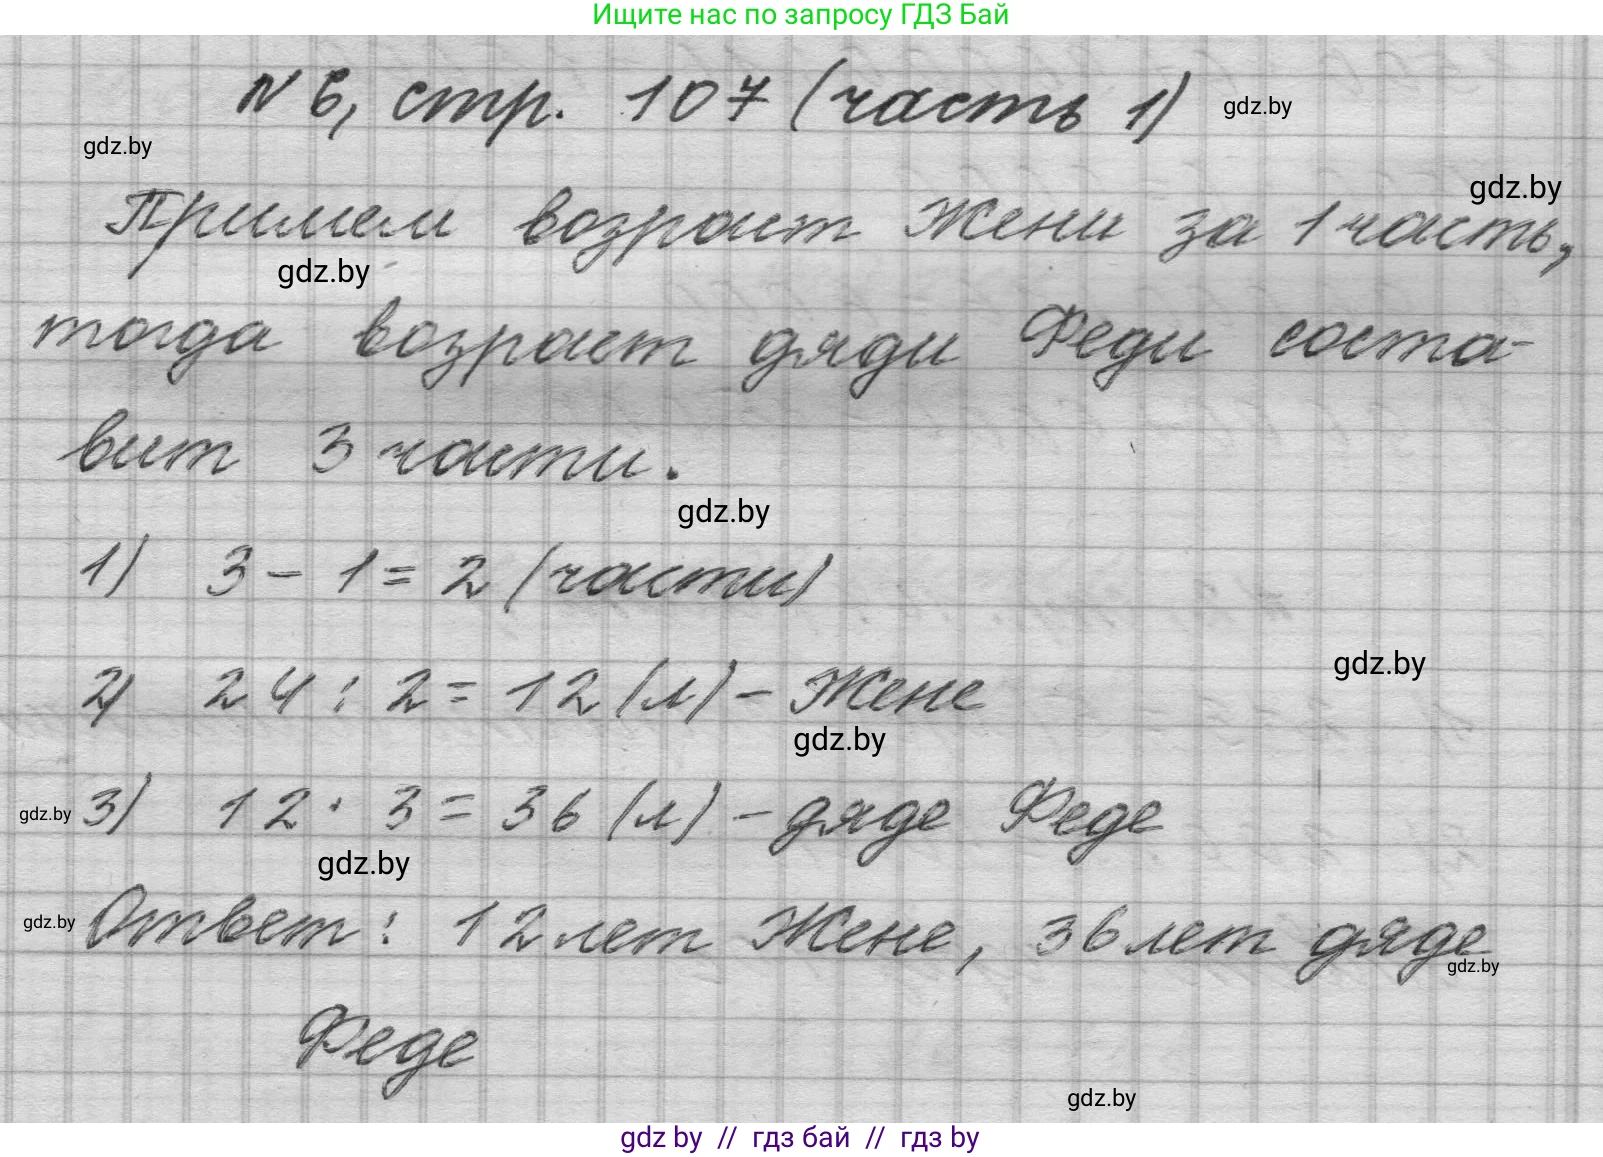 Ищите нас по запросу ГДЗ Бай
N 6, стр. 107 (часть 1)
gdz.by
gdz.by
gdz.by
Примем возраст Жени за 1 часть,
gdz.by
тогда возраст дяди Феди соста-
вит 3 части.
gdz.by
1) 3 - 1 = 2 (части)
gdz.by
2) 24 : 2 = 12 (л) - Жене
gdz.by
gdz.by
3) 12 · 3 = 36 (л) - дяде Феде
gdz.by
gdz.by
Ответ: 12 лет Жене, 36 лет дяде
gdz.by
Феде
gdz.by
gdz by // гдз бай // гдз by